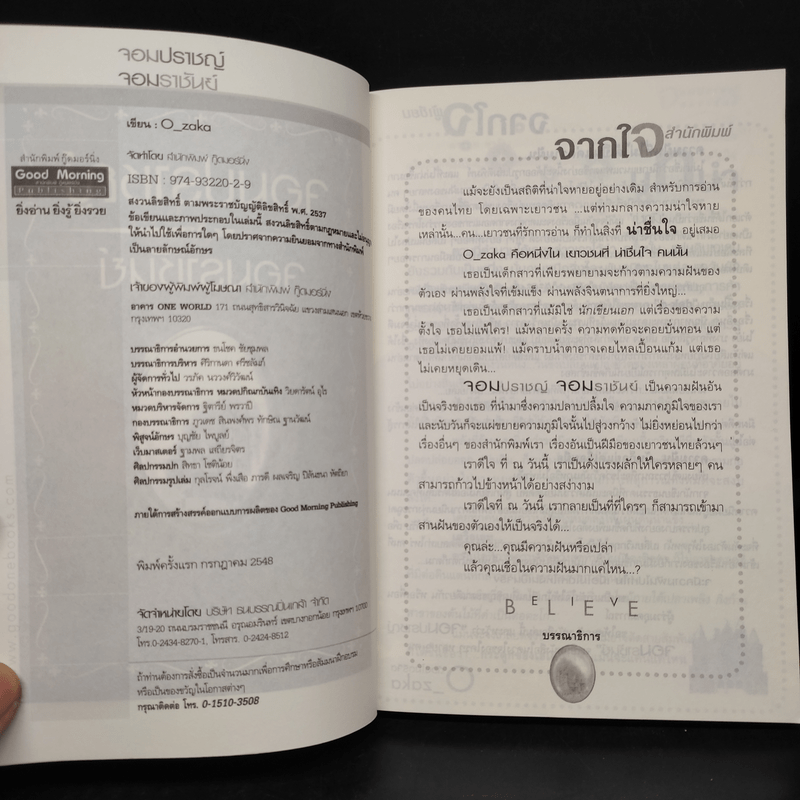 จอมปราชญ์
จอมราชันย์
เขียน : O_zaka
สำนักพิมพ์ กู๊ดมอร์นิ่ง
Good Morning
Publishing
ยิ่งอ่าน ยิ่งรู้ ยิ่งรวย
จัดทำโดย สำนักพิมพ์ กู๊ดมอร์นิ่ง
ISBN : 974-93220-2-9
สงวนลิขสิทธิ์ ตามพระราชบัญญัติลิขสิทธิ์ พ.ศ. 2537
ข้อเขียนและภาพประกอบในเล่มนี้ สงวนลิขสิทธิ์ตามกฎหมายและไม่
ให้นำไปใช้เพื่อการใดๆ โดยปราศจากความยินยอมจากทางสำนักพิมพ์
เป็นลายลักษณ์อักษร
เจ้าของผู้พิมพ์ผู้โฆษณา สำนักพิมพ์ กู๊ดมอร์นิ่ง
อาคาร ONE WORLD 171 ถนนสุทธิสารวินิจฉัย แขวงสามเสนนอก
กรุงเทพฯ 10320
บรรณาธิการอำนวยการ ธนโชค ชัยชุมพล
บรรณาธิการบริหาร ศิริกานดา ศรีชลัมภ์
ผู้จัดการทั่วไป วรภัค นววงศ์วิวัฒน์
หัวหน้ากองบรรณาธิการ หมวดปกิณกบันเทิง วิยดารัตน์ อุไร
หมวดบริหารจัดการ ฐิตารีย์ พรวาปี
กองบรรณาธิการ ภูวเดช สินพงศ์พร ทักษิณ ฐานวัฒน์
พิสูจน์อักษร บุญชัย ไพบูลย์
เว็บมาสเตอร์ ฐามพล เสถียรจิตร
ศิลปกรรมปก สิทธา โชติน้อย
ศิลปกรรมรูปเล่ม กุลโรจน์ พึ่งเสือ ภารดี ผลเจริญ ปิลันธนา ทัดเยีย
ภายใต้การสร้างสรรค์ออกแบบการผลิตของ Good Morning Publishing
พิมพ์ครั้งแรก กรกฎาคม 2548
จัดจำหน่ายโดย บริษัท ธนบรรณปิ่นเกล้า จำกัด
3/19-20 ถนนบรมราชชนนี อรุณอมรินทร์ เขตบางกอกน้อย กรุงเทพฯ 10700
โทร.0-2434-8270-1, โทรสาร. 0-2424-8512
ถ้าท่านต้องการสั่งซื้อเป็นจำนวนมากเพื่อการศึกษาหรือสัมมนาฝึกอบรม
หรือเป็นของขวัญในโอกาสต่างๆ
กรุณาติดต่อ โทร. 0-1510-3508
จากใจ สำนักพิมพ์
แม้จะยังเป็นสถิติที่น่าใจหายอยู่อย่างเดิม สำหรับการอ่าน
ของคนไทย โดยเฉพาะเยาวชน ...แต่ท่ามกลางความน่าใจหาย
เหล่านั้น...คน...เยาวชนที่รักการอ่าน ก็ทำในสิ่งที่ น่าชื่นใจ อยู่เสมอ
O_zaka คือหนึ่งใน เยาวชนที่ น่าชื่นใจ คนนั้น
เธอเป็นเด็กสาวที่เพียรพยายามจะก้าวตามความฝันของ
ตัวเอง ผ่านพลังใจที่เข้มแข็ง ผ่านพลังจินตนาการที่ยิ่งใหญ่...
เธอเป็นเด็กสาวที่แม้มิใช่ นักเขียนเอก แต่เรื่องของความ
ตั้งใจ เธอไม่แพ้ใคร! แม้หลายครั้ง ความทดท้อจะคอยบั่นทอน แต่
เธอไม่เคยยอมแพ้! แม้คราบน้ำตาอาจเคยไหลเปื้อนแก้ม แต่เธอ
ไม่เคยหยุดเดิน...
จอมปราชญ์ จอมราชันย์ เป็นความฝันอัน
เป็นจริงของเธอ ที่นำมาซึ่งความปลาบปลื้มใจ ความภาคภูมิใจของเรา
และนับวันก็จะแผ่ขยายความภูมิใจนั้นไปสู่วงกว้าง ไม่ยิ่งหย่อนไปกว่า
เรื่องอื่นๆ ของสำนักพิมพ์เรา เรื่องอันเป็นฝีมือของเยาวชนไทยล้วนๆ
เราดีใจ ที่ ณ วันนี้ เราเป็นดั่งแรงผลักให้ใครหลายๆ คน
สามารถก้าวไปข้างหน้าได้อย่างสง่างาม
เราดีใจที่ ณ วันนี้ เรากลายเป็นที่ที่ใครๆ ก็สามารถเข้ามา
สานฝันของตัวเองให้เป็นจริงได้...
คุณล่ะ...คุณมีความฝันหรือเปล่า
แล้วคุณเชื่อในความฝันมากแค่ไหน...?
BELIEVE
บรรณาธิการ